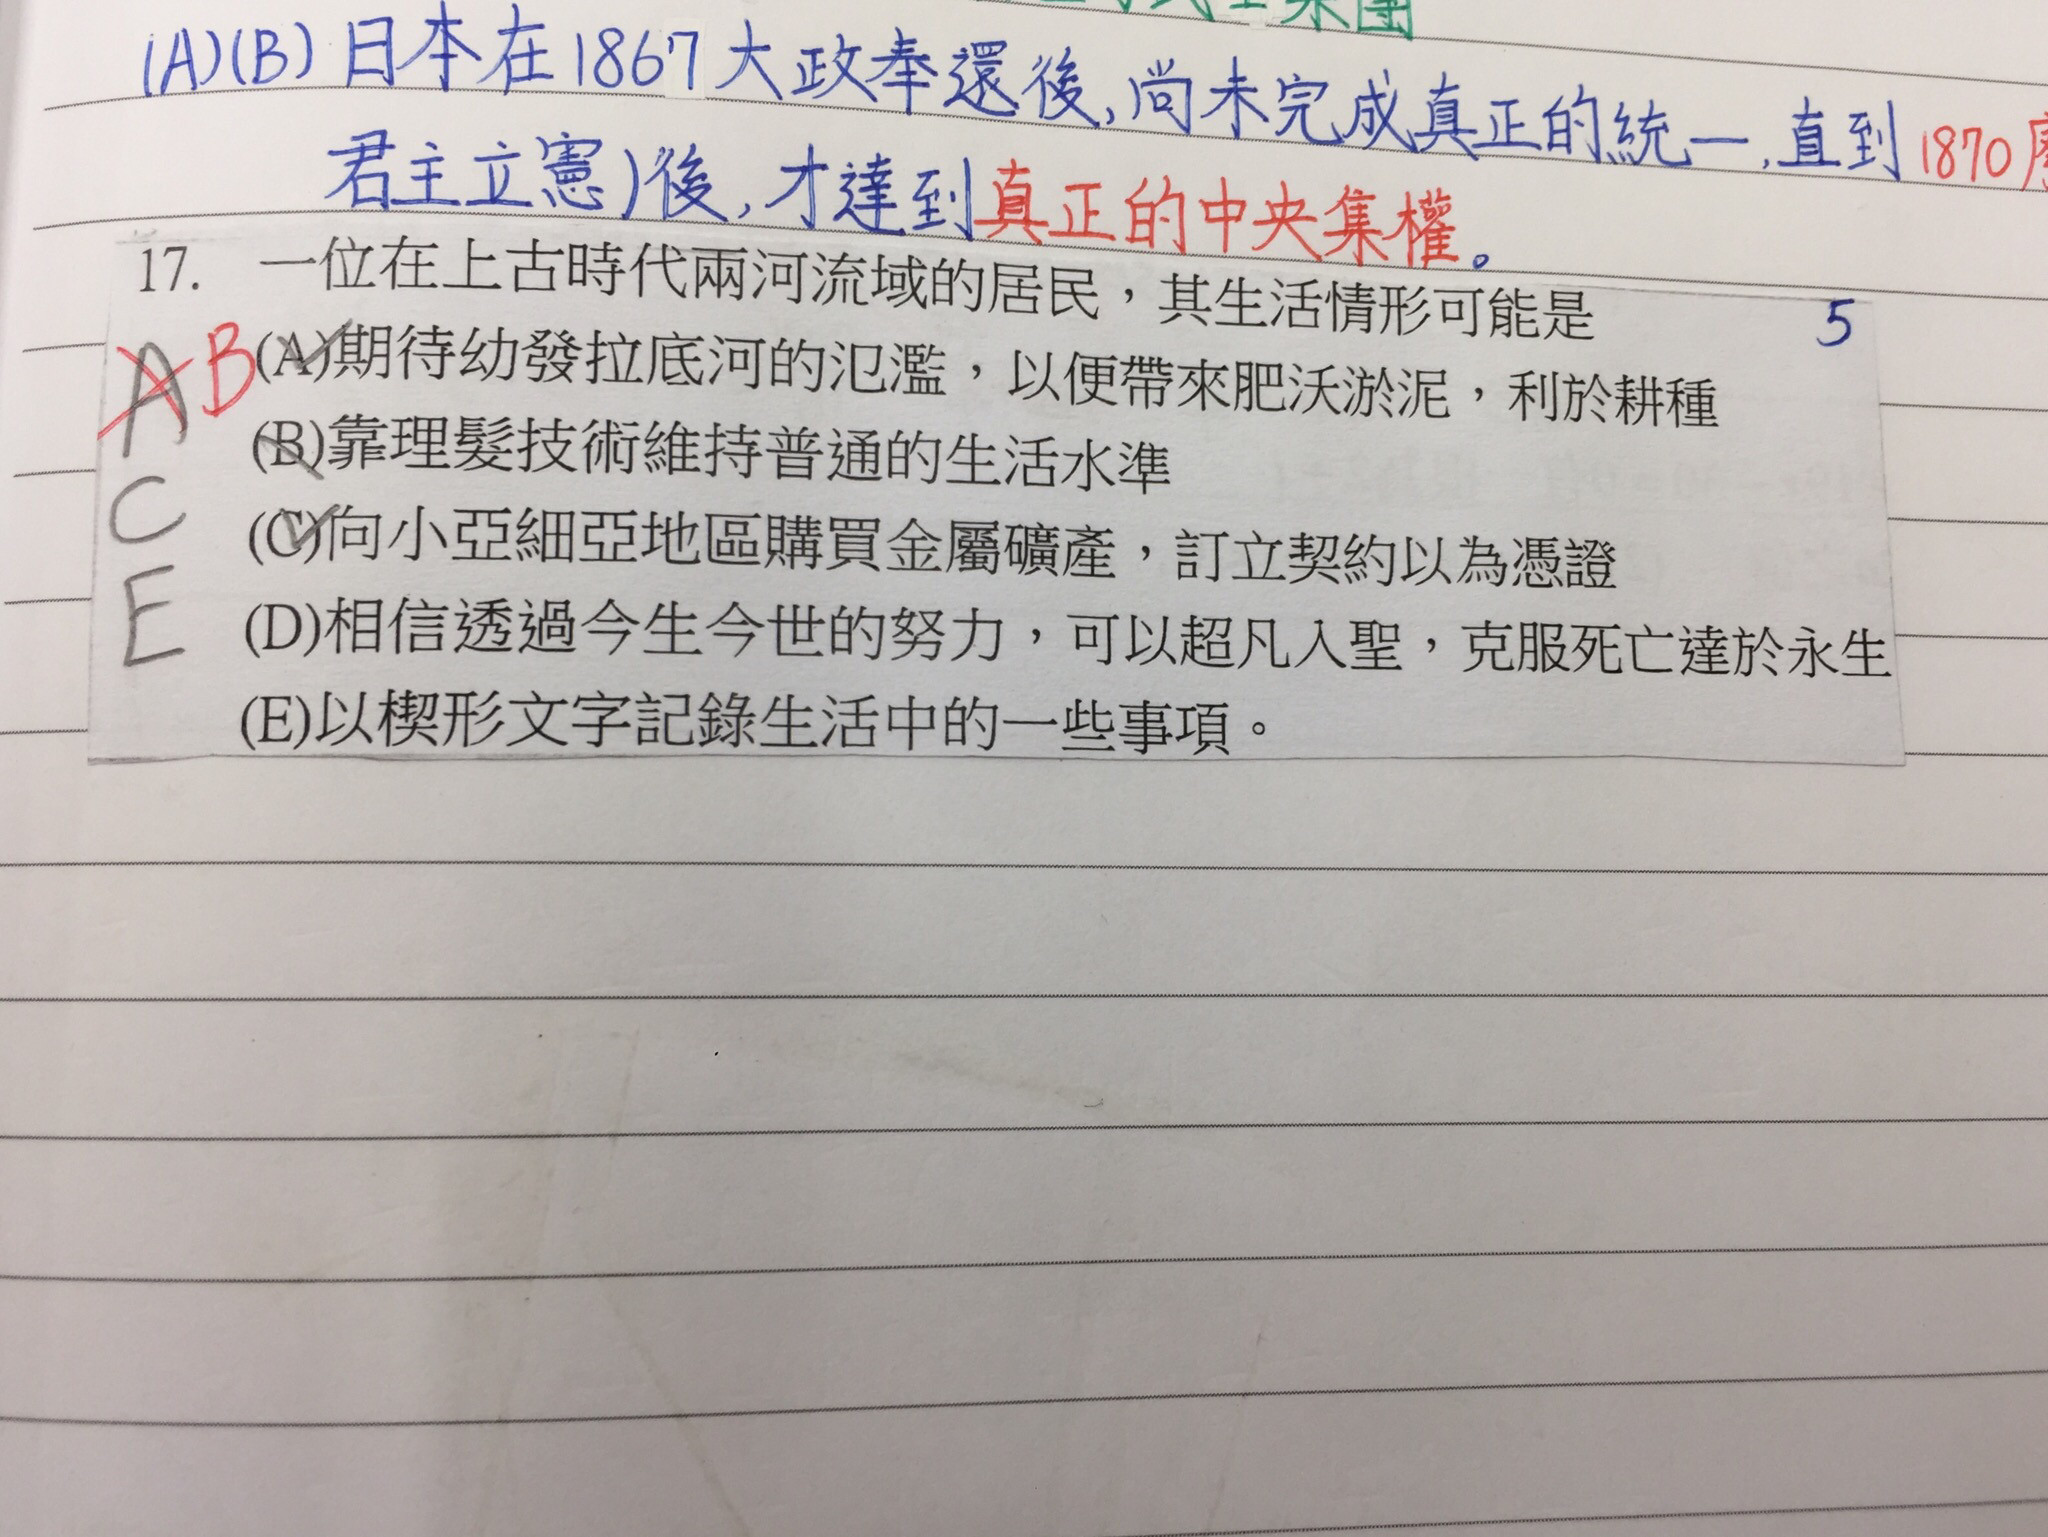 集團
(A)(B)日本在1867大政奉還後,尚未完成真正的統一,直到1870
君主立憲)後,才達到真正的中央集權。
17. 一位在上古時代兩河流域的居民，其生活情形可能是 5
A B (A)期待幼發拉底河的氾濫，以便帶來肥沃淤泥，利於耕種
(B)靠理髮技術維持普通的生活水準
C (C)向小亞細亞地區購買金屬礦產，訂立契約以為憑證
E (D)相信透過今生今世的努力，可以超凡入聖，克服死亡達於永生
(E)以楔形文字記錄生活中的一些事項。